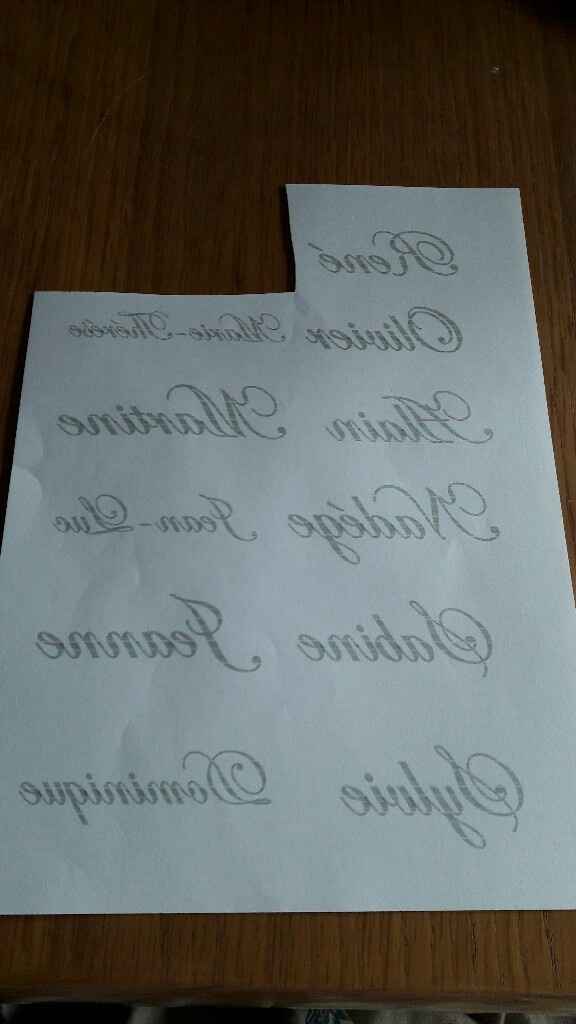 René
Olivier Marie-Thérèse
Alain Martine
Nadége Jean-Luc
Sabine Jeanne
Sylvie Dominique